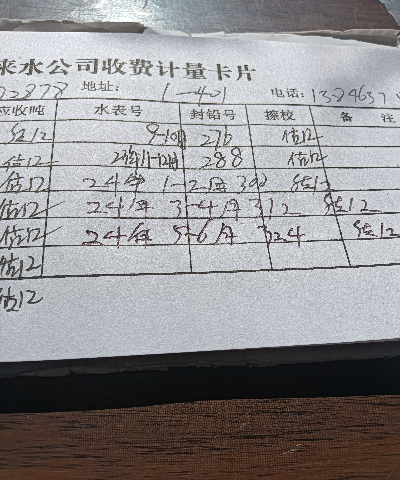 来水公司收费计量卡片
02878 地址: 1-401 电话: 1384637
应收吨 水表号 封铅号 擦校 备注
估12 9-10月 276 估12
估12 23年11-12月 288 估12
估12 24年 1-2月 300 估12
估12 24年 3-4月 312 估12
估12 24年 5-6月 324 估12
估12
估12